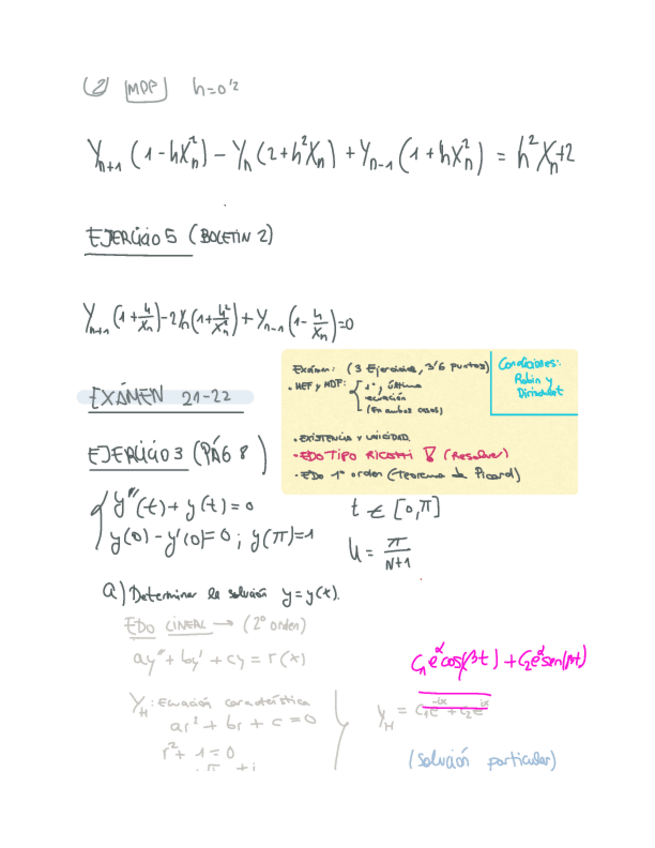 (2) MDP h=0'2
Y_{n+1} (1-hX_n^2) - Y_n (2+h^2X_n) + Y_{n-1} (1+hX_n^2) = h^2X_n+2
EJERCICIO 5 (BOLETIN 2)
Y_{n+1} (1+\frac{h}{X_n}) - 2Y_n(1+\frac{h^2}{X_n^2}) + Y_{n-1} (1-\frac{h}{X_n}) = 0
Exámen: (3 Ejercicios, 3'6 puntos)
. MEF y MDF: 1ª, última
ecuación
(En ambos casos)
Condiciones:
Robin y
Dirischlet
EXÁMEN 21-22
. EXISTENCIA Y UNICIDAD.
• EDO TIPO RICATTI (Resolver)
• EDO 1º orden (Teorema de Picard)
EJERCICIO 3 (PÁG 8)
y''(t) + y(t) = 0 t ∈ [0,π]
y(0) - y'(0) = 0 ; y(π)=1
h = \frac{π}{N+1}
a) Determinar la solución y=y(x).
EDO LINEAL → (2º orden)
ay'' + by' + cy = r(x)
C_1 e^α cos(βt) + C_2 e^α sen(βt)
Y_H : Ecuación característica
ar^2 + br + c = 0
y_H = C_1e^{-ix} + C_2e^{ix}
r^2 + 1 = 0
(solución particular)